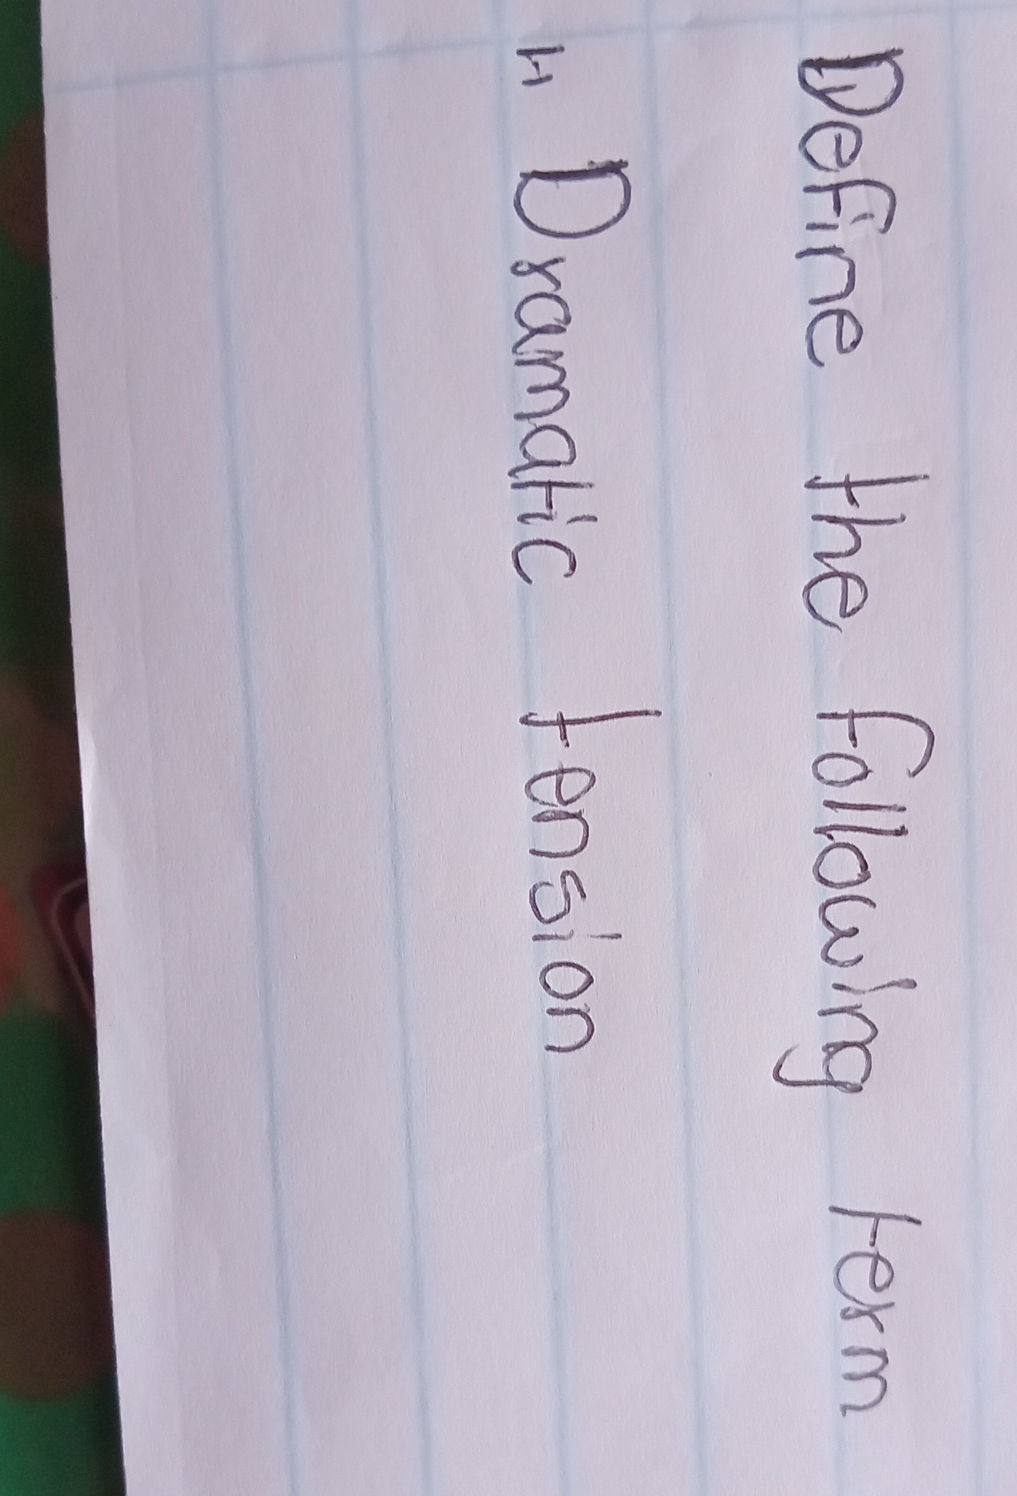 Define the following term
" Dramatic tension